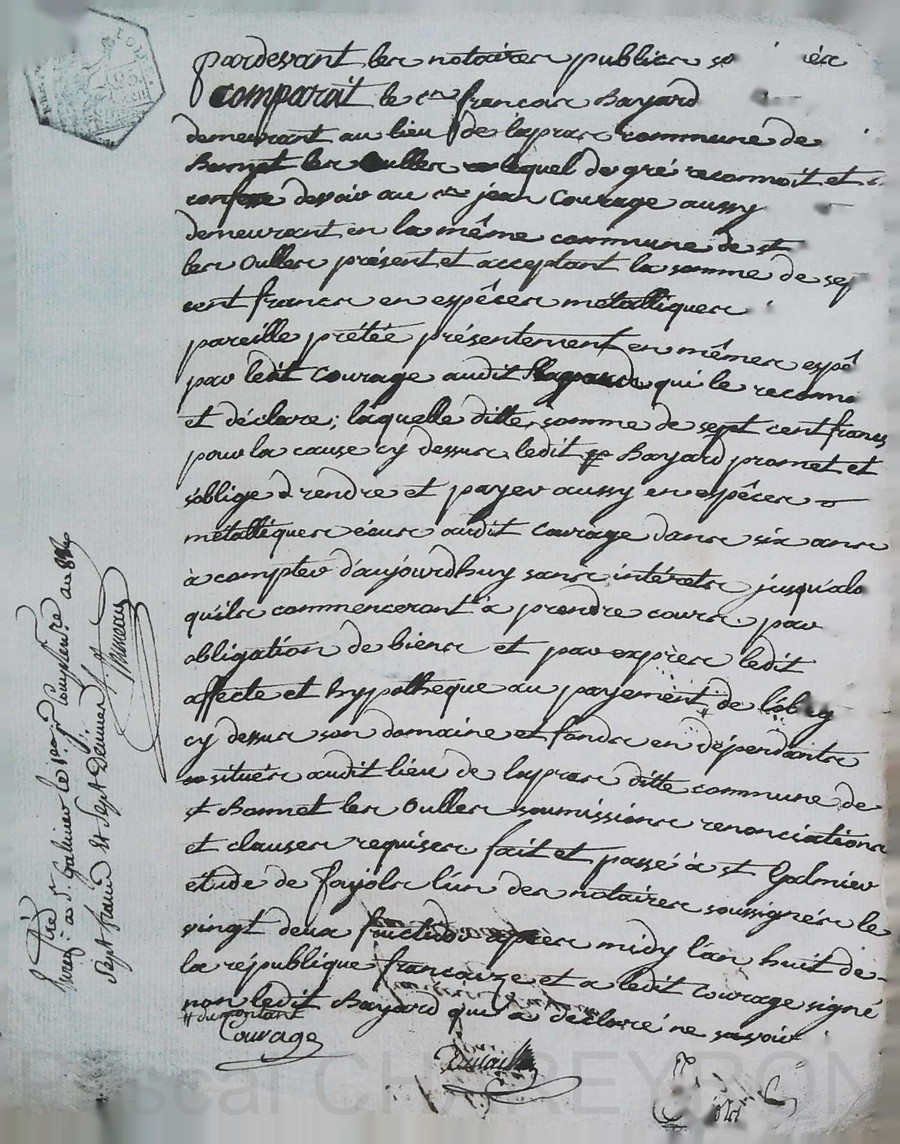 pardevant les notaires publics so
comparait le cen francois Bayard
demeurant au lieu de laypras commune de
Bonnet les Oulles lequel de gré reconnoit et
confesse devoir au cen jean Courage aussy
demeurant en la même commune de st
les Oulles présent et acceptant la somme de sep
cent francs en espêces métalliques
pareille prétée présentement en mêmes espê
par ledit Courage audit qui le reconno
et déclare; laquelle ditte somme de sept cent francs
pour la cause cy dessus ledit Bayard promet et
s'oblige à rendre et payer aussy en espêces
métalliques écus audit Courage dans six ans
à compter d'aujourdhuy sans intérêts jusqu'alo
qu'ils commenceront à prendre cours. par
obligation de biens et par exprès ledit
affecte et hypotheque au payement de lob
cy dessus son domaine et fonds en dépendants
situés audit lieu de laypras ditte commune de
st Bonnet les Oulles soumissions renonciations
et clauses requises. fait et passé à st Galmier
étude de fayols l'un des notaires soussignés le
vingt deux fructidor après midy l'an huit de
la république françaize et a ledit Courage signé
non ledit Bayard qui a déclaré ne savoir
# du montant
Courage
a St Galmier le
Sept francs et Sept